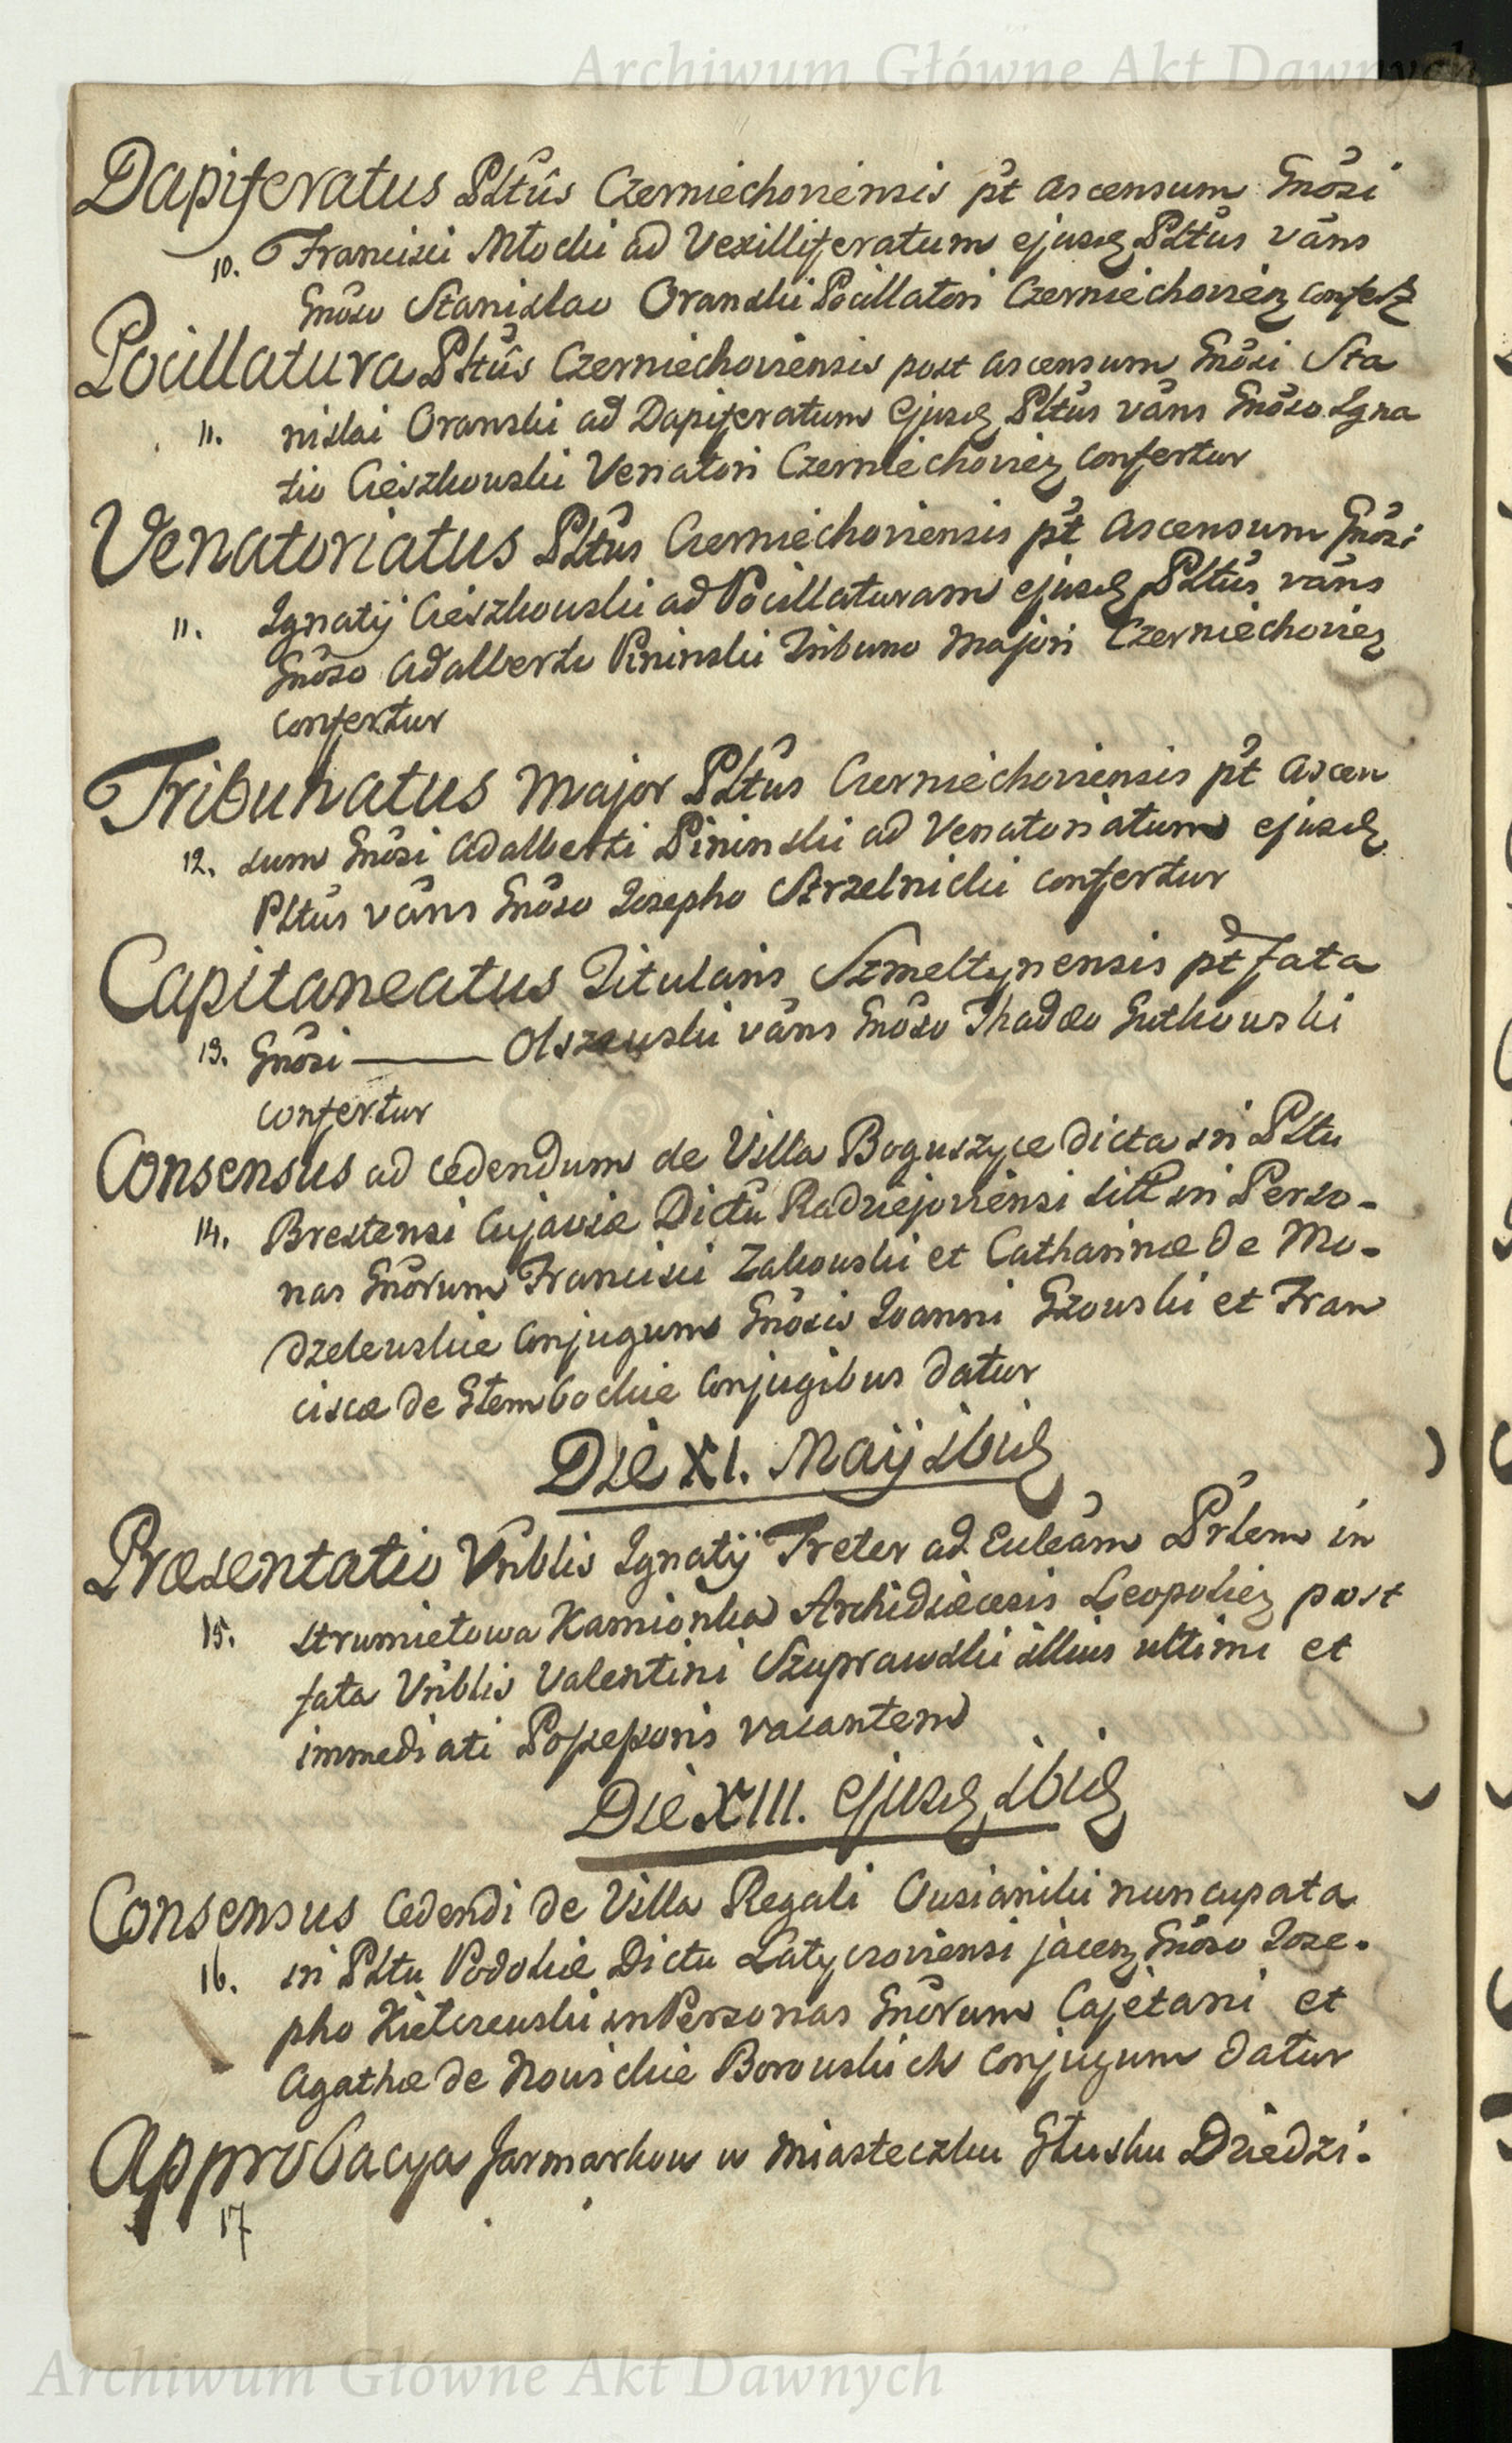 Archiwum Główne Akt Dawnych
Dapiferatus Pltûs Czerniechoviensis p̃t ascensum Gnõsi
10. Francisci Młocki ad Vexilliferatum ejusd Pltũs vãns
Gnõso Stanislao Oranski Pocillatori Czerniechovien confert
Pocillatura Pltûs Czerniechoviensis post ascensum Gnõsi Sta
11. nislai Oranski ad Dapiferatum ejusd Pltũs vãns Gnõso Igna
tio Cieszkowski Venatori Czerniechovien confertur
Venatoriatus Pltũs Czerniechoviensis p̃t ascensum Gnõsi
11. Ignatij Cieszkowski ad Pocillaturam ejusd Pltũs vãns
Gnõso Adalberto Pininski Tribuno Majori Czerniechovien
confertur
Tribunatus Major Pltũs Czerniechoviensis p̃t ascen
12. sum Gnõsi Adalberti Pininski ad Venatoriatum ejusd
Pltũs vãns Gnõso Josepho Strzelnicki confertur
Capitaneatus Titularis Szmeltynensis p̃t fata
13. Gnõsi ——— Olszewski vãns Gnõso Thadæo Gutkowski
confertur
Consensus ad cedendum de Villa Boguszyce dicta in Pltu
14. Brestensi Cujaviæ Dictũ Radziejoviensi sitt in Perso-
nas Gnõrum Francisci Zakowski et Catharinæ de Mo-
dzelewskie Conjugum Gnõsis Joanni Gzowski et Fran
ciscæ de Stembockie Conjugibus datur
Die XI. Maij ibid
Præsentatio Vñblis Ignatij Treter ad Eccleãm Pr̃lem in
15. Strumiełowa Kamionka Archidiæcesis Leopolien post
fata Vñblis Valentini Szuprawski illius ultimi et
immediati Possessoris vacantem
Die XIII. ejusd ibid
Consensus Cedendi de Villa Regali Ousianiki nuncupata
16. in Pltu Podoliæ Dictu Latyczoviensi jacen Gnõso Jose-
pho Kielczewski in Personas Gnõrum Cajetani et
Agathæ de Nowickie Borowskich Conjugum datur
Approbacya Jarmarkow w Miasteczku Słusku Dziedzi-
17
Archiwum Główne Akt Dawnych